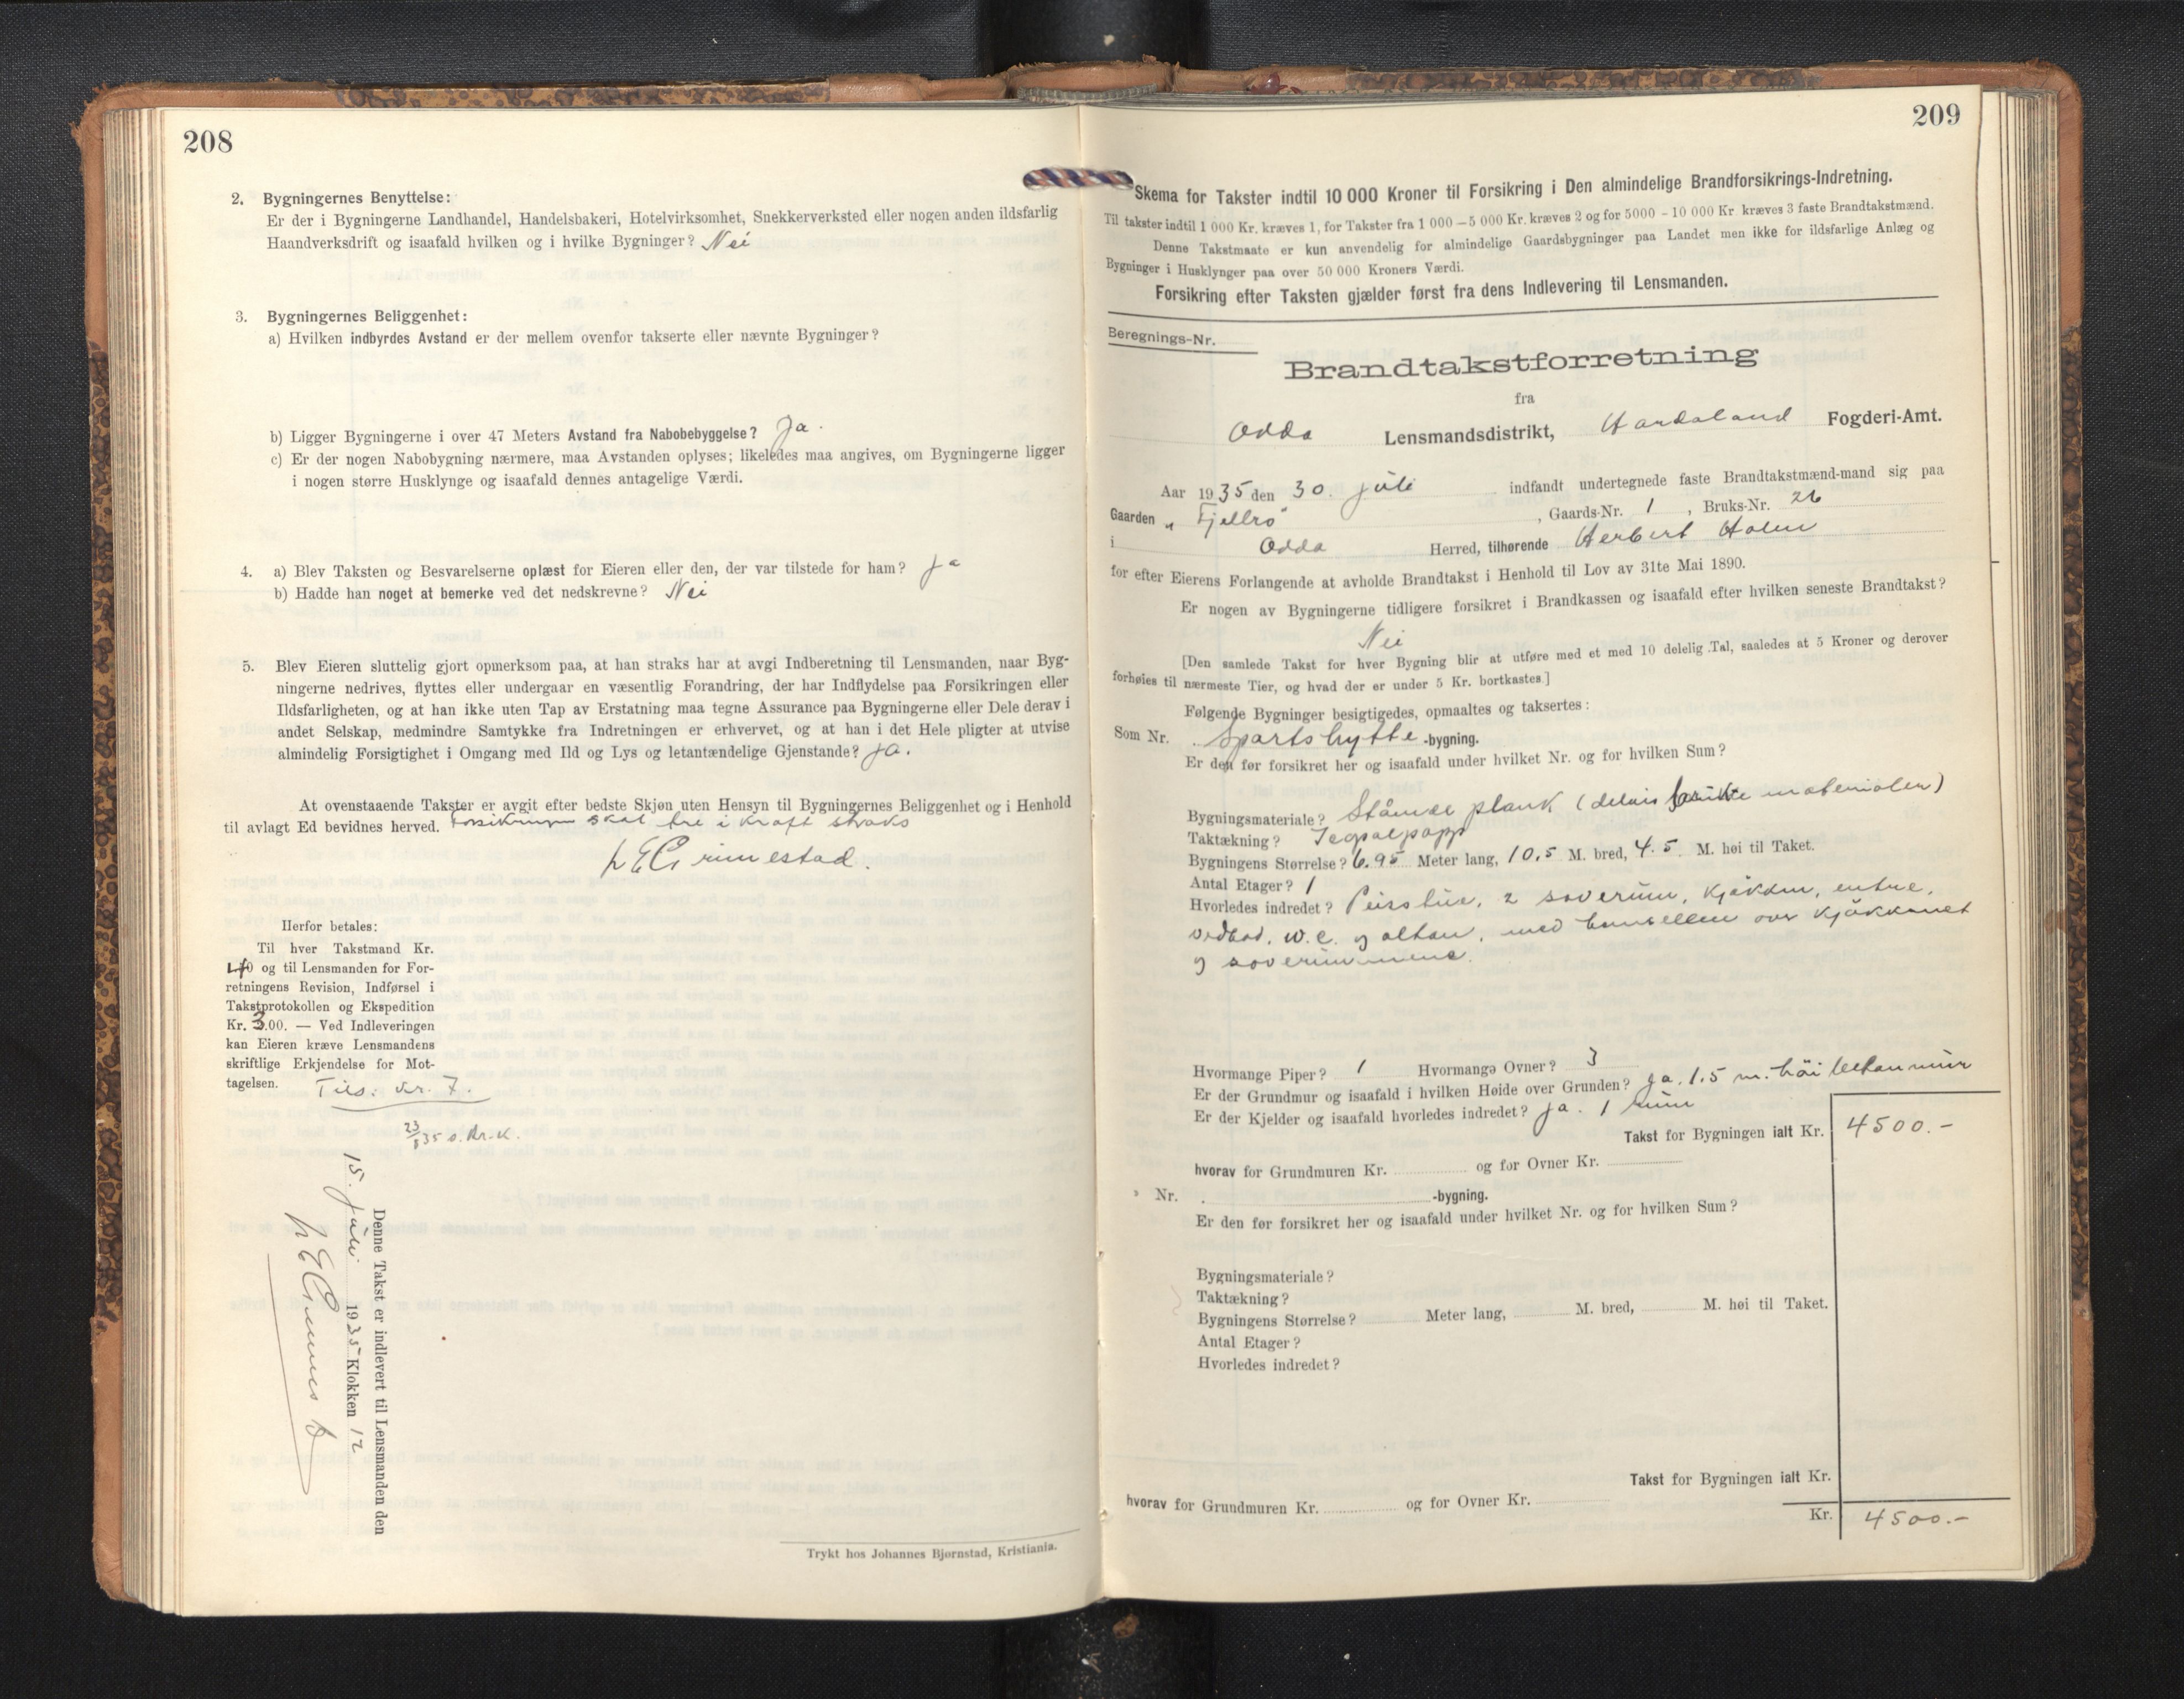 208
2. Bygningernes Benyttelse:
Er der i Bygningerne Landhandel, Handelsbakeri, Hotelvirksomhet, Snekkerverksted eller nogen anden ildsfarlig
Haandverksdrift og isaafald hvilken og i hvilke Bygninger? Nei
3. Bygningernes Beliggenhet:
a) Hvilken indbyrdes Avstand er der mellem ovenfor takserte eller nævnte Bygninger?
b) Ligger Bygningerne i over 47 Meters Avstand fra Nabobebyggelse? Ja.
c) Er der nogen Nabobygning nærmere, maa Avstanden oplyses; likeledes maa angives, om Bygningerne ligger
i nogen større Husklynge og isaafald dennes antagelige Værdi.
4. a) Blev Taksten og Besvarelserne oplæst for Eieren eller den, der var tilstede for ham? Ja
b) Hadde han noget at bemerke ved det nedskrevne? Nei
5. Blev Eieren sluttelig gjort opmerksom paa, at han straks har at avgi Indberetning til Lensmanden, naar Byg-
ningerne nedrives, flyttes eller undergaar en væsentlig Forandring, der har Indflydelse paa Forsikringen eller
Ildsfarligheten, og at han ikke uten Tap av Erstatning maa tegne Assurance paa Bygningerne eller Dele derav i
andet Selskap, medmindre Samtykke fra Indretningen er erhvervet, og at han i det Hele pligter at utvise
almindelig Forsigtighet i Omgang med Ild og Lys og letantændelige Gjenstande? Ja.
At ovenstaaende Takster er avgit efter bedste Skjøn uten Hensyn til Bygningernes Beliggenhet og i Henhold
til avlagt Ed bevidnes herved. Forsikringen skal tre i kraft straks
Grimestad.
Herfor betales:
Til hver Takstmand Kr.
og til Lensmanden for For-
retningens Revision, Indførsel i
Takstprotokollen og Ekspedition
Kr. 3.00. — Ved Indleveringen
kan Eieren kræve Lensmandens
skriftlige Erkjendelse for Mot-
tagelsen. Tils: kr. 7.
23/8 35 s. Br.K.
Denne Takst er indlevert til Lensmanden den
15. Juli 1935 Klokken 12
Trykt hos Johannes Bjørnstad, Kristiania.
209
Skema for Takster indtil 10 000 Kroner til Forsikring i Den almindelige Brandforsikrings-Indretning.
Til takster indtil 1 000 Kr. kræves 1, for Takster fra 1 000 – 5 000 Kr. kræves 2 og for 5000 – 10 000 Kr. kræves 3 faste Brandtakstmænd.
Denne Takstmaate er kun anvendelig for almindelige Gaardsbygninger paa Landet men ikke for ildsfarlige Anlæg og
Bygninger i Husklynger paa over 50 000 Kroners Værdi.
Forsikring efter Taksten gjælder først fra dens Indlevering til Lensmanden.
Beregnings-Nr.
Brandtakstforretning
fra
Odda Lensmandsdistrikt, Hordaland Fogderi-Amt.
Aar 1935 den 30. juli indfandt undertegnede faste Brandtakstmænd-mand sig paa
Gaarden „Fjellro“, Gaards-Nr. 1, Bruks-Nr. 26
i Odda Herred, tilhørende Herbert Holm
for efter Eierens Forlangende at avholde Brandtakst i Henhold til Lov av 31te Mai 1890.
Er nogen av Bygningerne tidligere forsikret i Brandkassen og isaafald efter hvilken seneste Brandtakst?
Nei
[Den samlede Takst for hver Bygning blir at utføre med et med 10 delelig Tal, saaledes at 5 Kroner og derover
forhøies til nærmeste Tier, og hvad der er under 5 Kr. bortkastes.]
Følgende Bygninger besigtigedes, opmaaltes og taksertes:
Som Nr. Sportshytte -bygning.
Er den før forsikret her og isaafald under hvilket Nr. og for hvilken Sum?
Bygningsmateriale? Stående plank (delvis brukte materialer)
Taktækning? Tegpalpapp
Bygningens Størrelse? 6.95 Meter lang, 10.5 M. bred, 4.5 M. høi til Taket.
Antal Etager? 1
Hvorledes indredet? Peisstue, 2 soverum, kjøkken, entre,
vedbod, W.C. og altan, med hemsellem over kjøkkenet
og soverummene.
Hvormange Piper? 1 Hvormange Ovner? 3
Er der Grundmur og isaafald i hvilken Høide over Grunden? Ja. 1.5 m. høi betonmur
Er der Kjelder og isaafald hvorledes indredet? Ja. 1 rum
Takst for Bygningen ialt Kr. 4500.-
hvorav for Grundmuren Kr. og for Ovner Kr.
» Nr. -bygning.
Er den før forsikret her og isaafald under hvilket Nr. og for hvilken Sum?
Bygningsmateriale?
Taktækning?
Bygningens Størrelse? Meter lang, M. bred, M. høi til Taket.
Antal Etager?
Hvorledes indredet?
Takst for Bygningen ialt Kr.
hvorav for Grundmuren Kr. og for Ovner Kr.
Kr. 4500.-